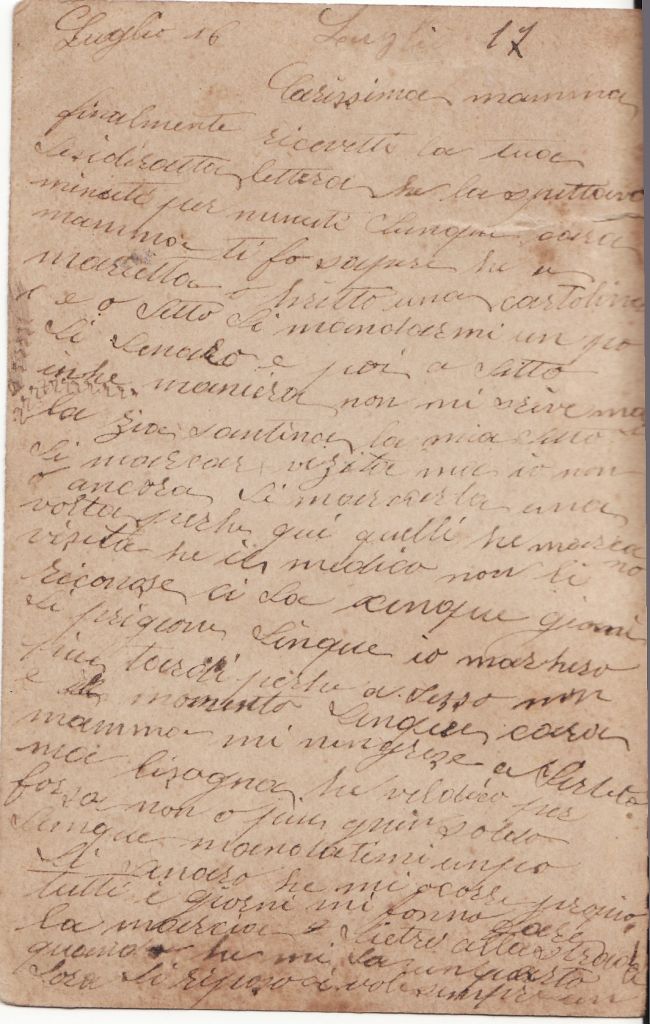 Luglio 16 Luglio 17
Carissima mamma
finalmente ricevetti la tua
desideratta lettera he la spittavo
minuti per minuti dunque cara
mamma ti fo sapere he a
marietta o schritto una cartolina
e o ditto di mandarmi un po
di denaro e poi o ditto
inhe maniera non mi scrive ma
la zia Santina la mia ditto
di marcar vizita ma io non
o ancora di marcarla una
volta perhe qui quelli he marca no
visita he il medico non li
riconose ci da cinque giorni
di prigione dunque io marhero
piu tardi perhe adesso non
e momento dunque cara
mamma mi ningrese a
ma bisogna he vildico per
forza non o piu guin soldo
dunque mandatimi unpo
di danaro he mi ocore propio
tutti i giorni mi fanno fare
la marcia
quando he mi da un quarto
dora di riposo a voi sempre un